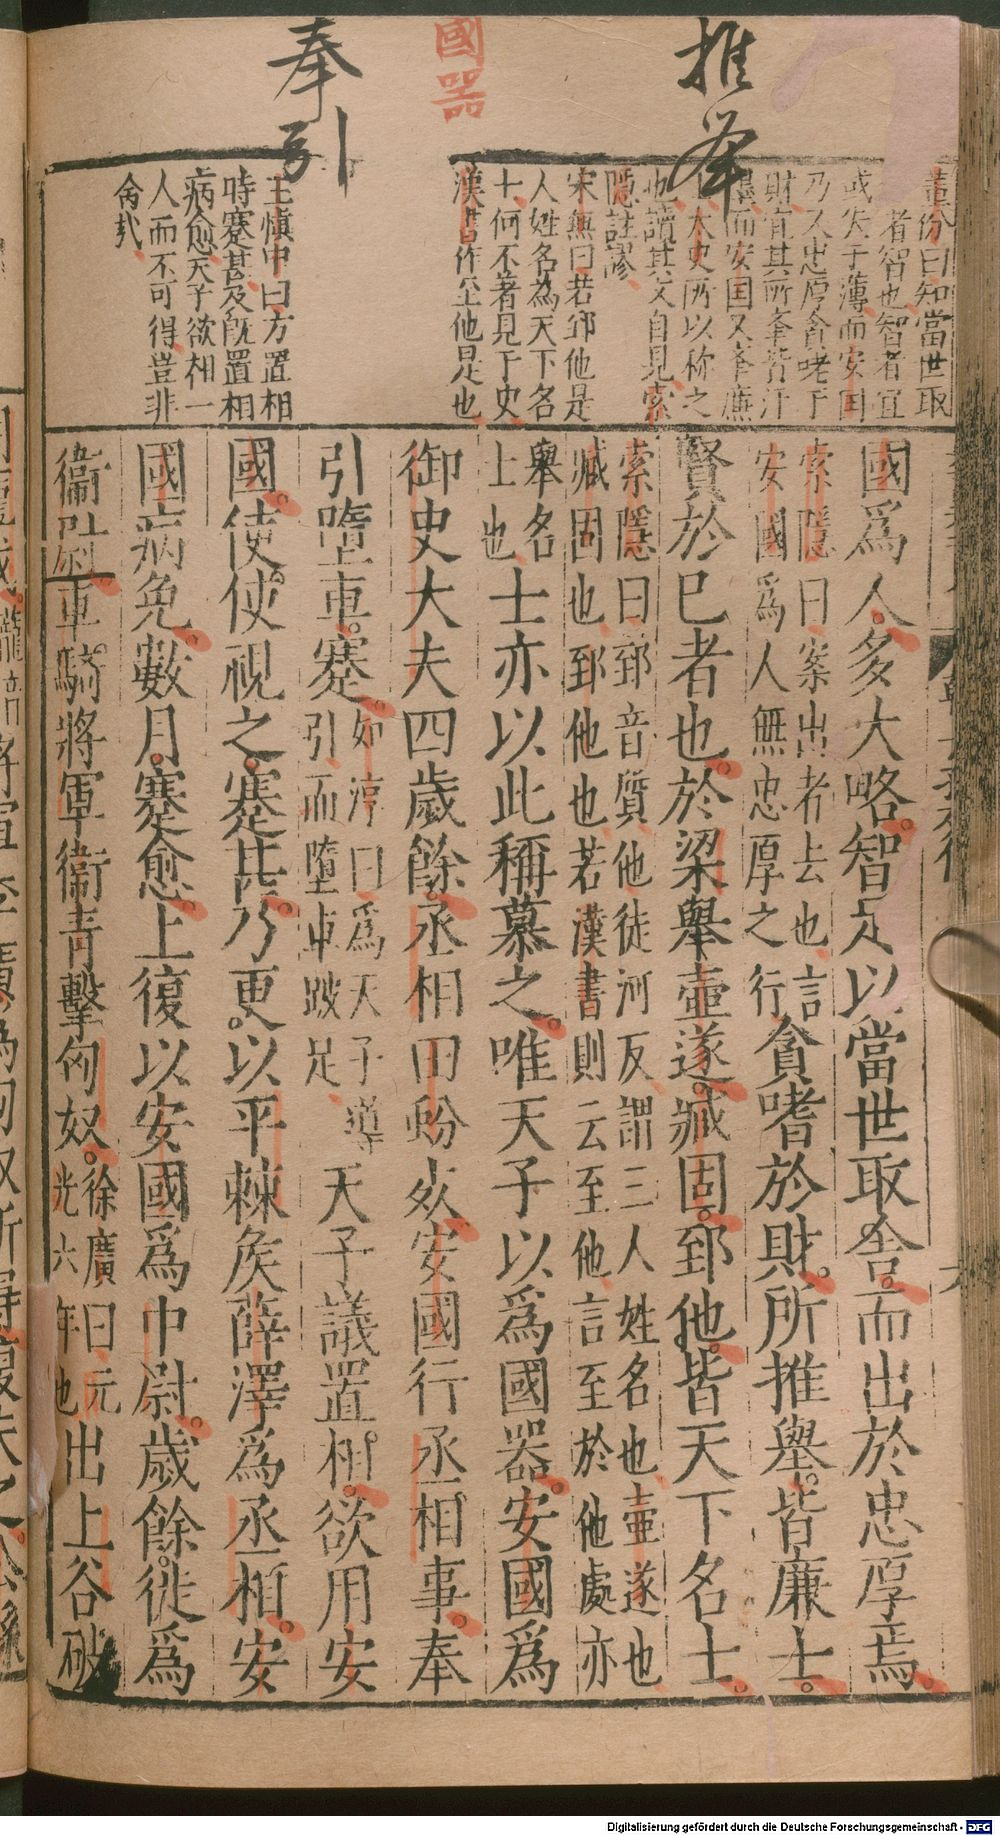 推舉
國器
奉引
董份曰知當世取
者智也智者宜
或失于薄而安国
乃又忠厚貪嗜于
財宜其所舉皆汙
而安国又舉廉
士太史所以称之
也讀其文自見索
隱註謬
宋無曰若郅他是
人姓名為天下名
士何不著見于史
漢書作至他是也
王慎中曰方置相
時蹇甚及既置相
病愈天子欲相一
人而不可得豈非
命哉
國爲人多大略智足以當世取舍而出於忠厚焉
索隱曰案出者去也言
安國爲人無忠厚之行
貪嗜於財所推舉皆廉士
賢於已者也於梁舉壺遂臧固郅他皆天下名士
索隱曰郅音質他徒河反謂三人姓名也壺遂也
臧固也郅他也若漢書則云至他言至於他處亦
舉名
上也
士亦以此稱慕之唯天子以爲國器安國爲
御史大夫四歲餘丞相田蚡死安國行丞相事奉
引墮車蹇
如淳曰爲天子導
引而墮車跛足
天子議置相欲用安
國使使視之蹇甚乃更以平棘矦薛澤爲丞相安
國病免數月蹇愈上復以安國爲中尉歲餘徙爲
衞尉車騎將軍衞青擊匈奴
徐廣曰元
光六年也
出上谷破
Digitalisierung gefördert durch die Deutsche Forschungsgemeinschaft - DFG